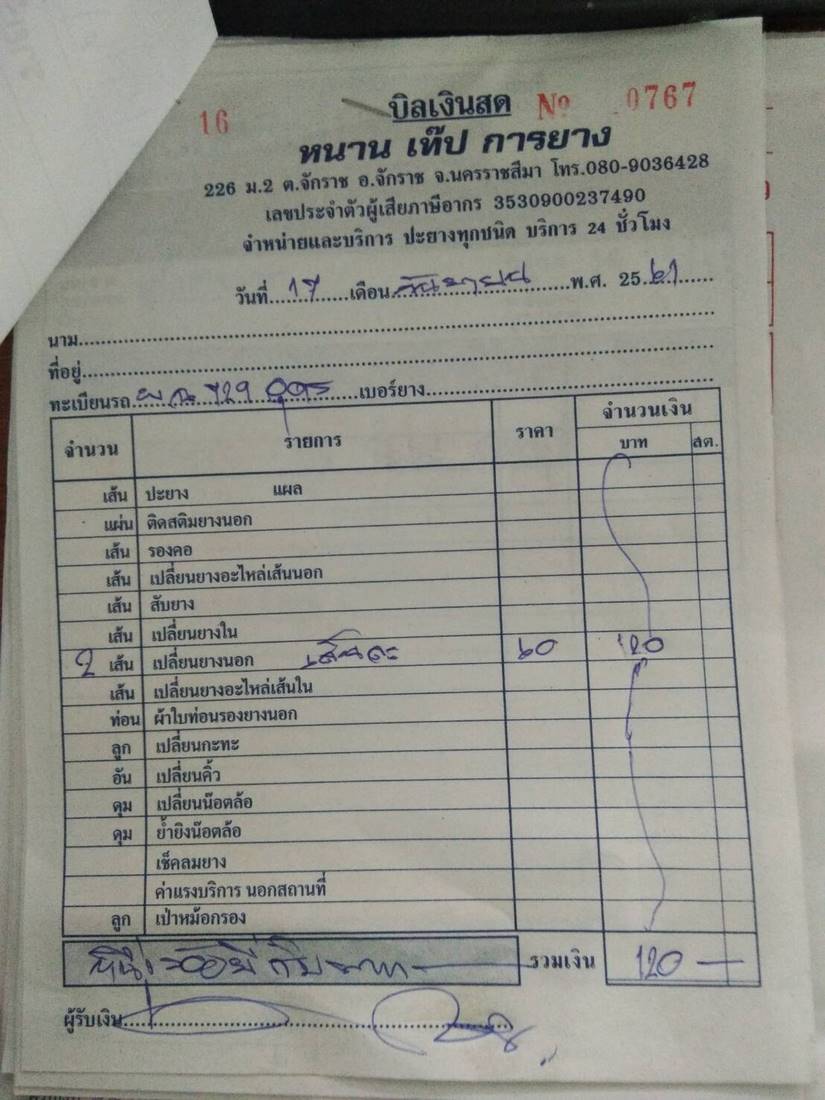 16 บิลเงินสด No 0767
หนาน เท๊ป การยาง
226 ม.2 ต.จักราช อ.จักราช จ.นครราชสีมา โทร.080-9036428
เลขประจำตัวผู้เสียภาษีอากร 3530900237490
จำหน่ายและบริการ ปะยางทุกชนิด บริการ 24 ชั่วโมง
วันที่ 17 เดือน กันยายน พ.ศ. 2561
นาม
ที่อยู่
ทะเบียนรถ 729 อุดร เบอร์ยาง
จำนวน รายการ ราคา จำนวนเงิน
บาท สต.
เส้น ปะยาง แผล
แผ่น ติดสติมยางนอก
เส้น รองคอ
เส้น เปลี่ยนยางอะไหล่เส้นนอก
เส้น สับยาง
เส้น เปลี่ยนยางใน
2 เส้น เปลี่ยนยางนอก เส้นละ 60 120
เส้น เปลี่ยนยางอะไหล่เส้นใน
ท่อน ผ้าใบท่อนรองยางนอก
ลูก เปลี่ยนกะทะ
อัน เปลี่ยนคิ้ว
ดุม เปลี่ยนน๊อตล้อ
ดุม ย้ำยิงน๊อตล้อ
เช็คลมยาง
ค่าแรงบริการ นอกสถานที่
ลูก เป่าหม้อกรอง
หนึ่งร้อยยี่สิบบาท รวมเงิน 120
ผู้รับเงิน